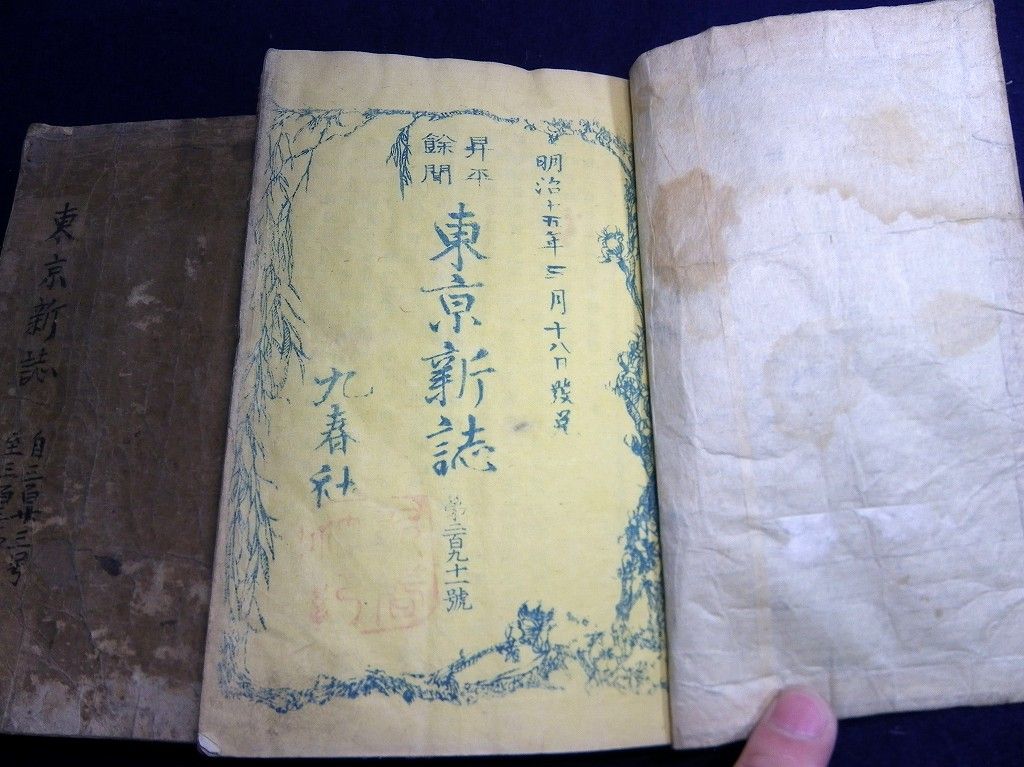 明治十五年三月十八日發兌
昇平
餘聞
東京新誌
第二百九十一號
九春社
東京新誌
自三百